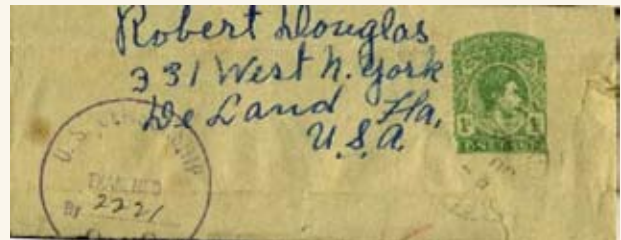 Robert Douglas
331 West N. York
De Land Fla.
U.S.A.
U.S. CENSORSHIP
EXAMINED
BY 2221
1ᴰ 1ᴰ